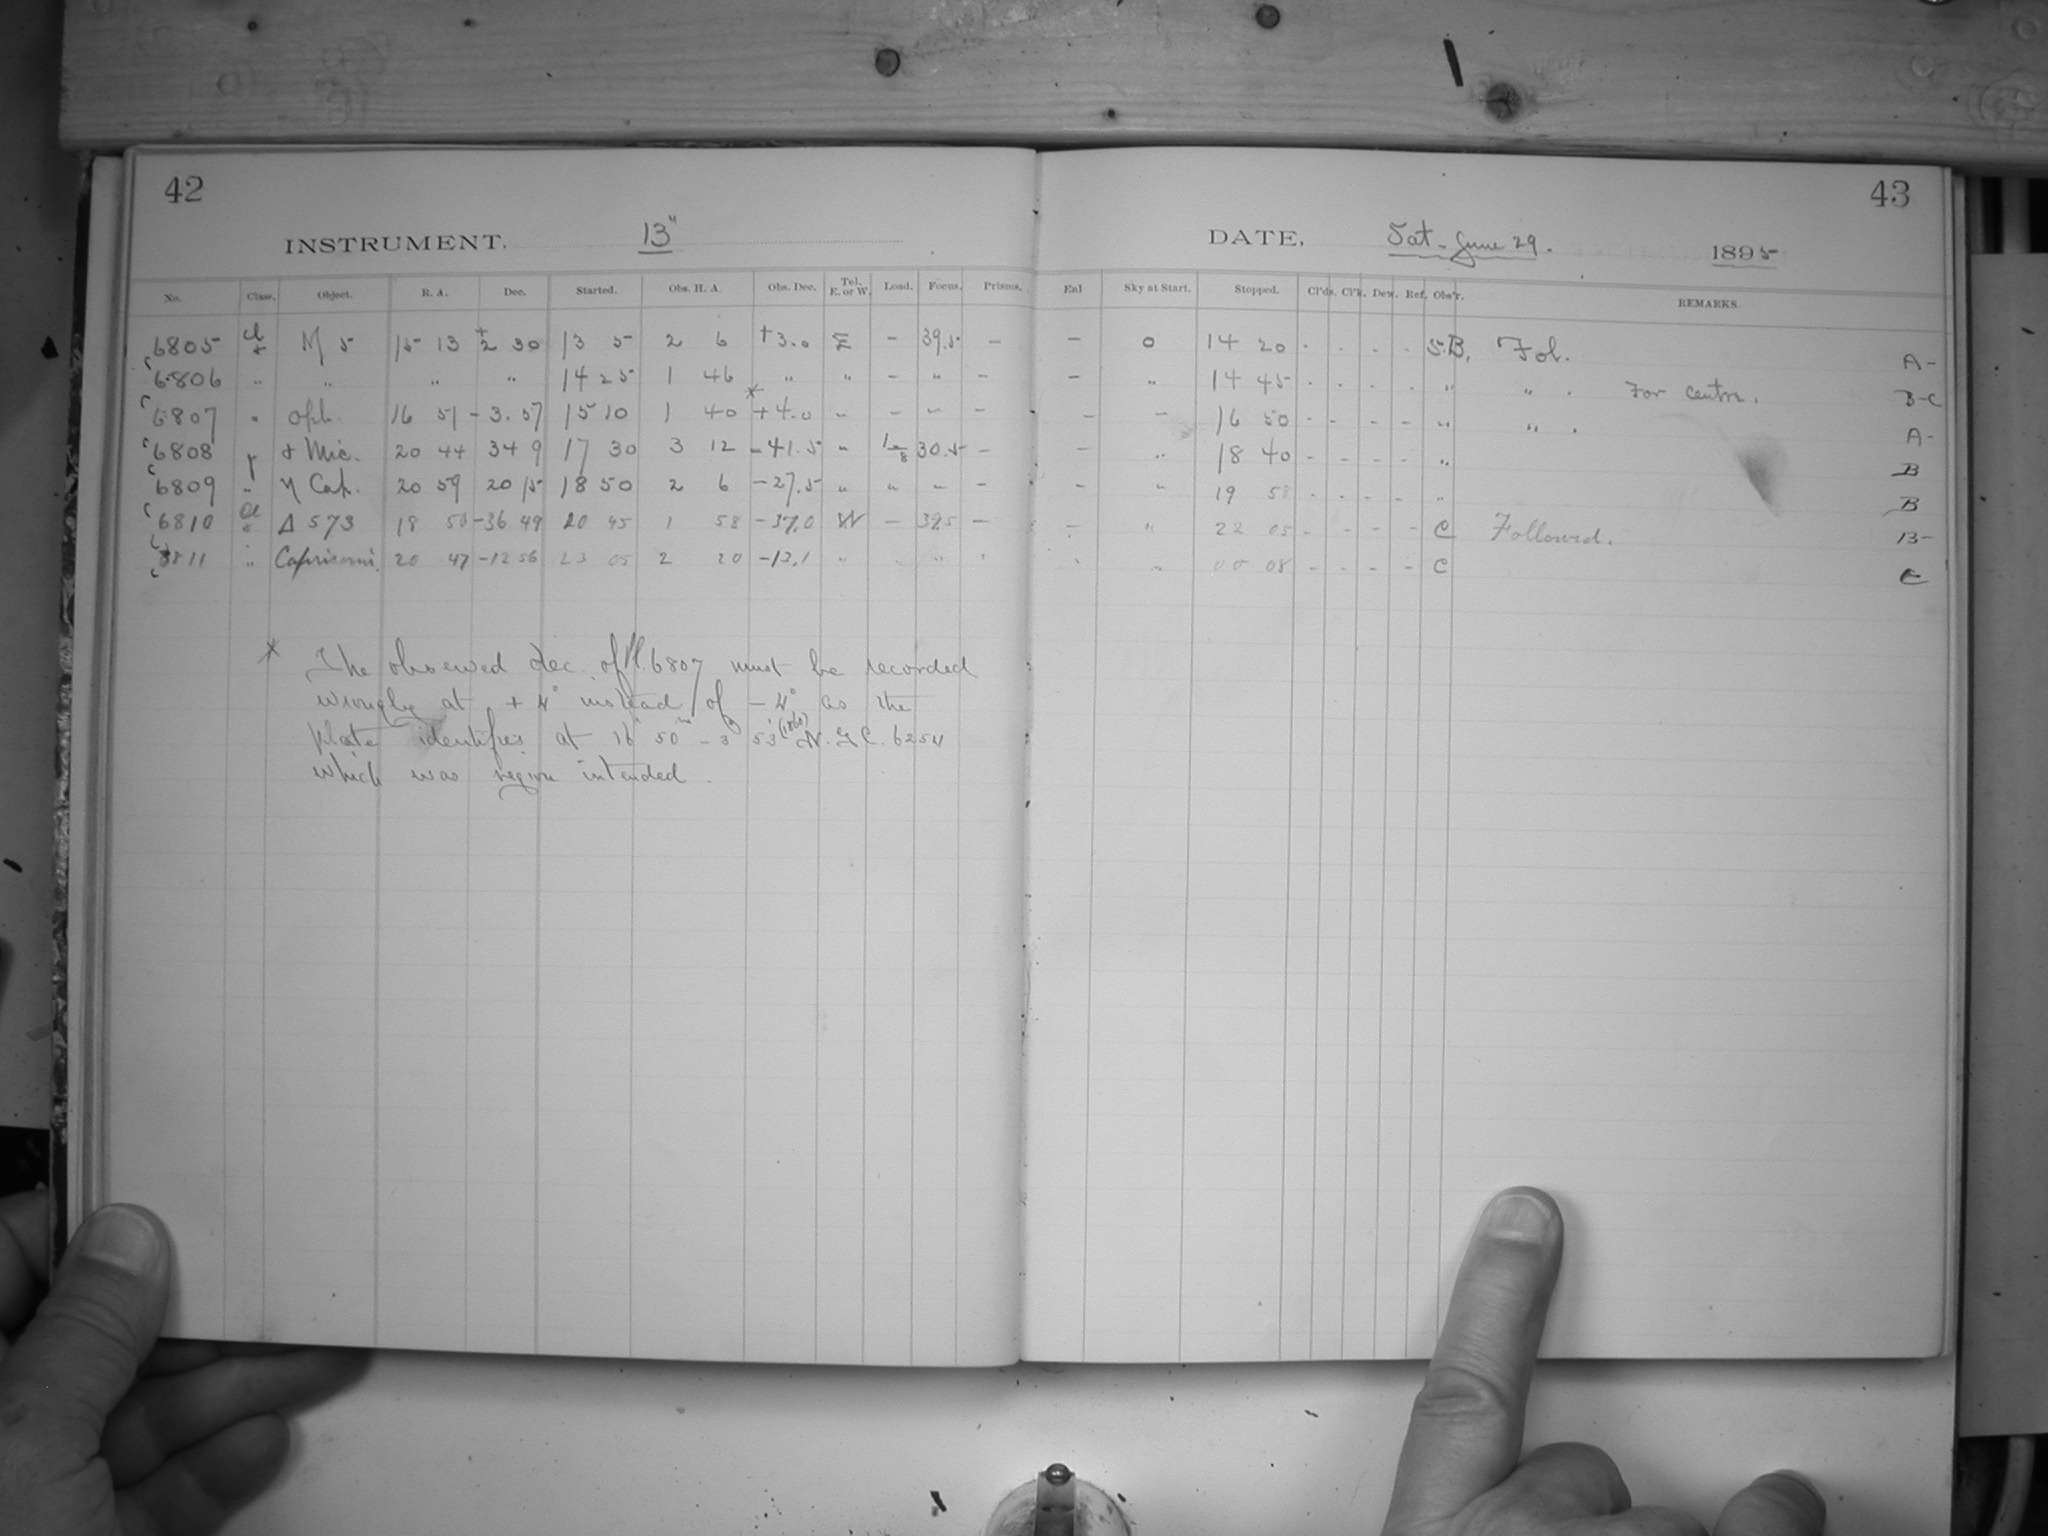 42
43
INSTRUMENT. 13"
DATE, Sat. June 29. 1895
No. Class. Object. R. A. Dec. Started. Obs. H. A. Obs. Dec. Tel. E. or W. Load. Focus. Prisms. Enl Sky at Start. Stopped. Cl'ds. Cl'k. Dew. Ref. Obs'r. REMARKS.
6805 M 5 15 13 + 2 30 13 5 2 6 +3.0 E - 39.5 - - 0 14 20 - - - - S.B. Fol. A-
6806 " " " " 14 25 1 46 " " - " - - " 14 45 - - - - " " . For centre. B-C
6807 " Oph. 16 51 - 3.57 15 10 1 40 * +4.0 " - " - - " 16 50 - - - - " " . A-
6808 Mic. 20 44 34 9 17 30 3 12 -41.5 " 30.5 - - " 18 40 - - - - " B
6809 " η Cap. 20 59 20 15 18 50 2 6 -27.5 " " " - - " 19 58 - - - - " B
6810 Δ 573 18 50 -36 49 20 45 1 58 -37.0 W - 39.5 - - " 22 05 - - - - C Followed. B-
6811 " Capricorni. 20 47 -12 56 23 05 2 20 -13.1 " " " 00 08 - - - - C C
* The observed dec. of Pl. 6807 must be recorded
wrongly at + 4° instead of - 4° as the
plate identifies at 16h 50m - 3° 53' (1860) N. G. C. 6254
which was region intended.